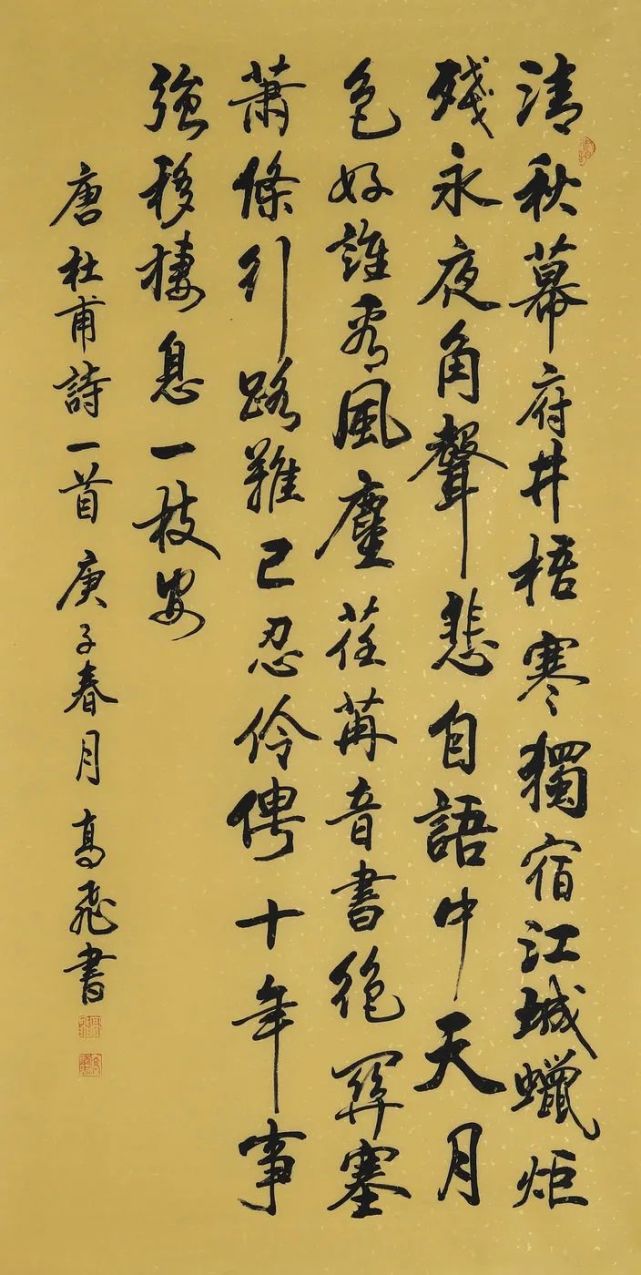 清秋幕府井梧寒獨宿江城蠟炬
殘永夜角聲悲自語中天月
色好誰看風塵荏苒音書絕關塞
蕭條行路難已忍伶俜十年事
強移棲息一枝安
唐杜甫詩一首庚子春月高飛書